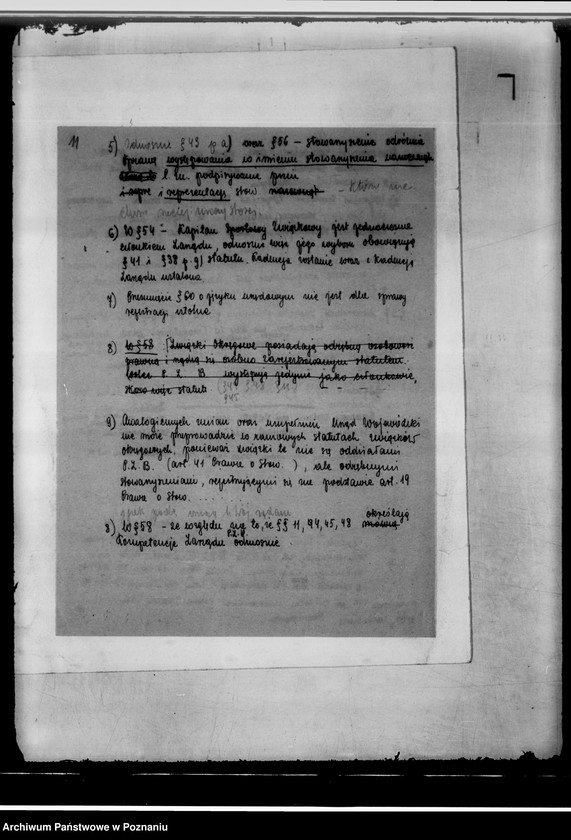 11
5) Odnośnie § 43 p. a) oraz § 56 – stowarzyszenie odróżnia
sprawę występowania w imieniu stowarzyszenia
t. zn. podpisywanie pism
i reprezentację stow.
6) W § 54 – Kapitan Sportowy Związkowy jest jednocześnie
członkiem Zarządu, odnośnie więc jego wyboru obowiązują
§ 41 i § 38 p. g) statutu. Kadencja zostanie wraz z kadencją
Zarządu ustalona
7) Brzmienie § 60 o języku urzędowym nie jest dla sprawy
rejestracji istotne
8) W § 58 (Związki Okręgowe posiadają odrębną osobowość
prawną i rządzą się osobno zarejestrowanym statutem.
wobec P. Z. B. występują jedynie jako członkowie,
więc statut
§ 45
9) Analogicznych zmian oraz uzupełnień Urząd Wojewódzki
nie może przeprowadzić w ramowych statutach związków
okręgowych, ponieważ związki te nie są oddziałami
P.Z.B. (art. 41 Prawa o Stow. ), ale odrębnymi
stowarzyszeniami, rejestrującymi się na podstawie art. 19
Prawa o Stow. ....
określają
8) W § 58 – ze względu na to, że §§ 11, 44, 45, 48 mówią
P.Z.B.
Kompetencje Zarządu odnośnie .
Archiwum Państwowe w Poznaniu